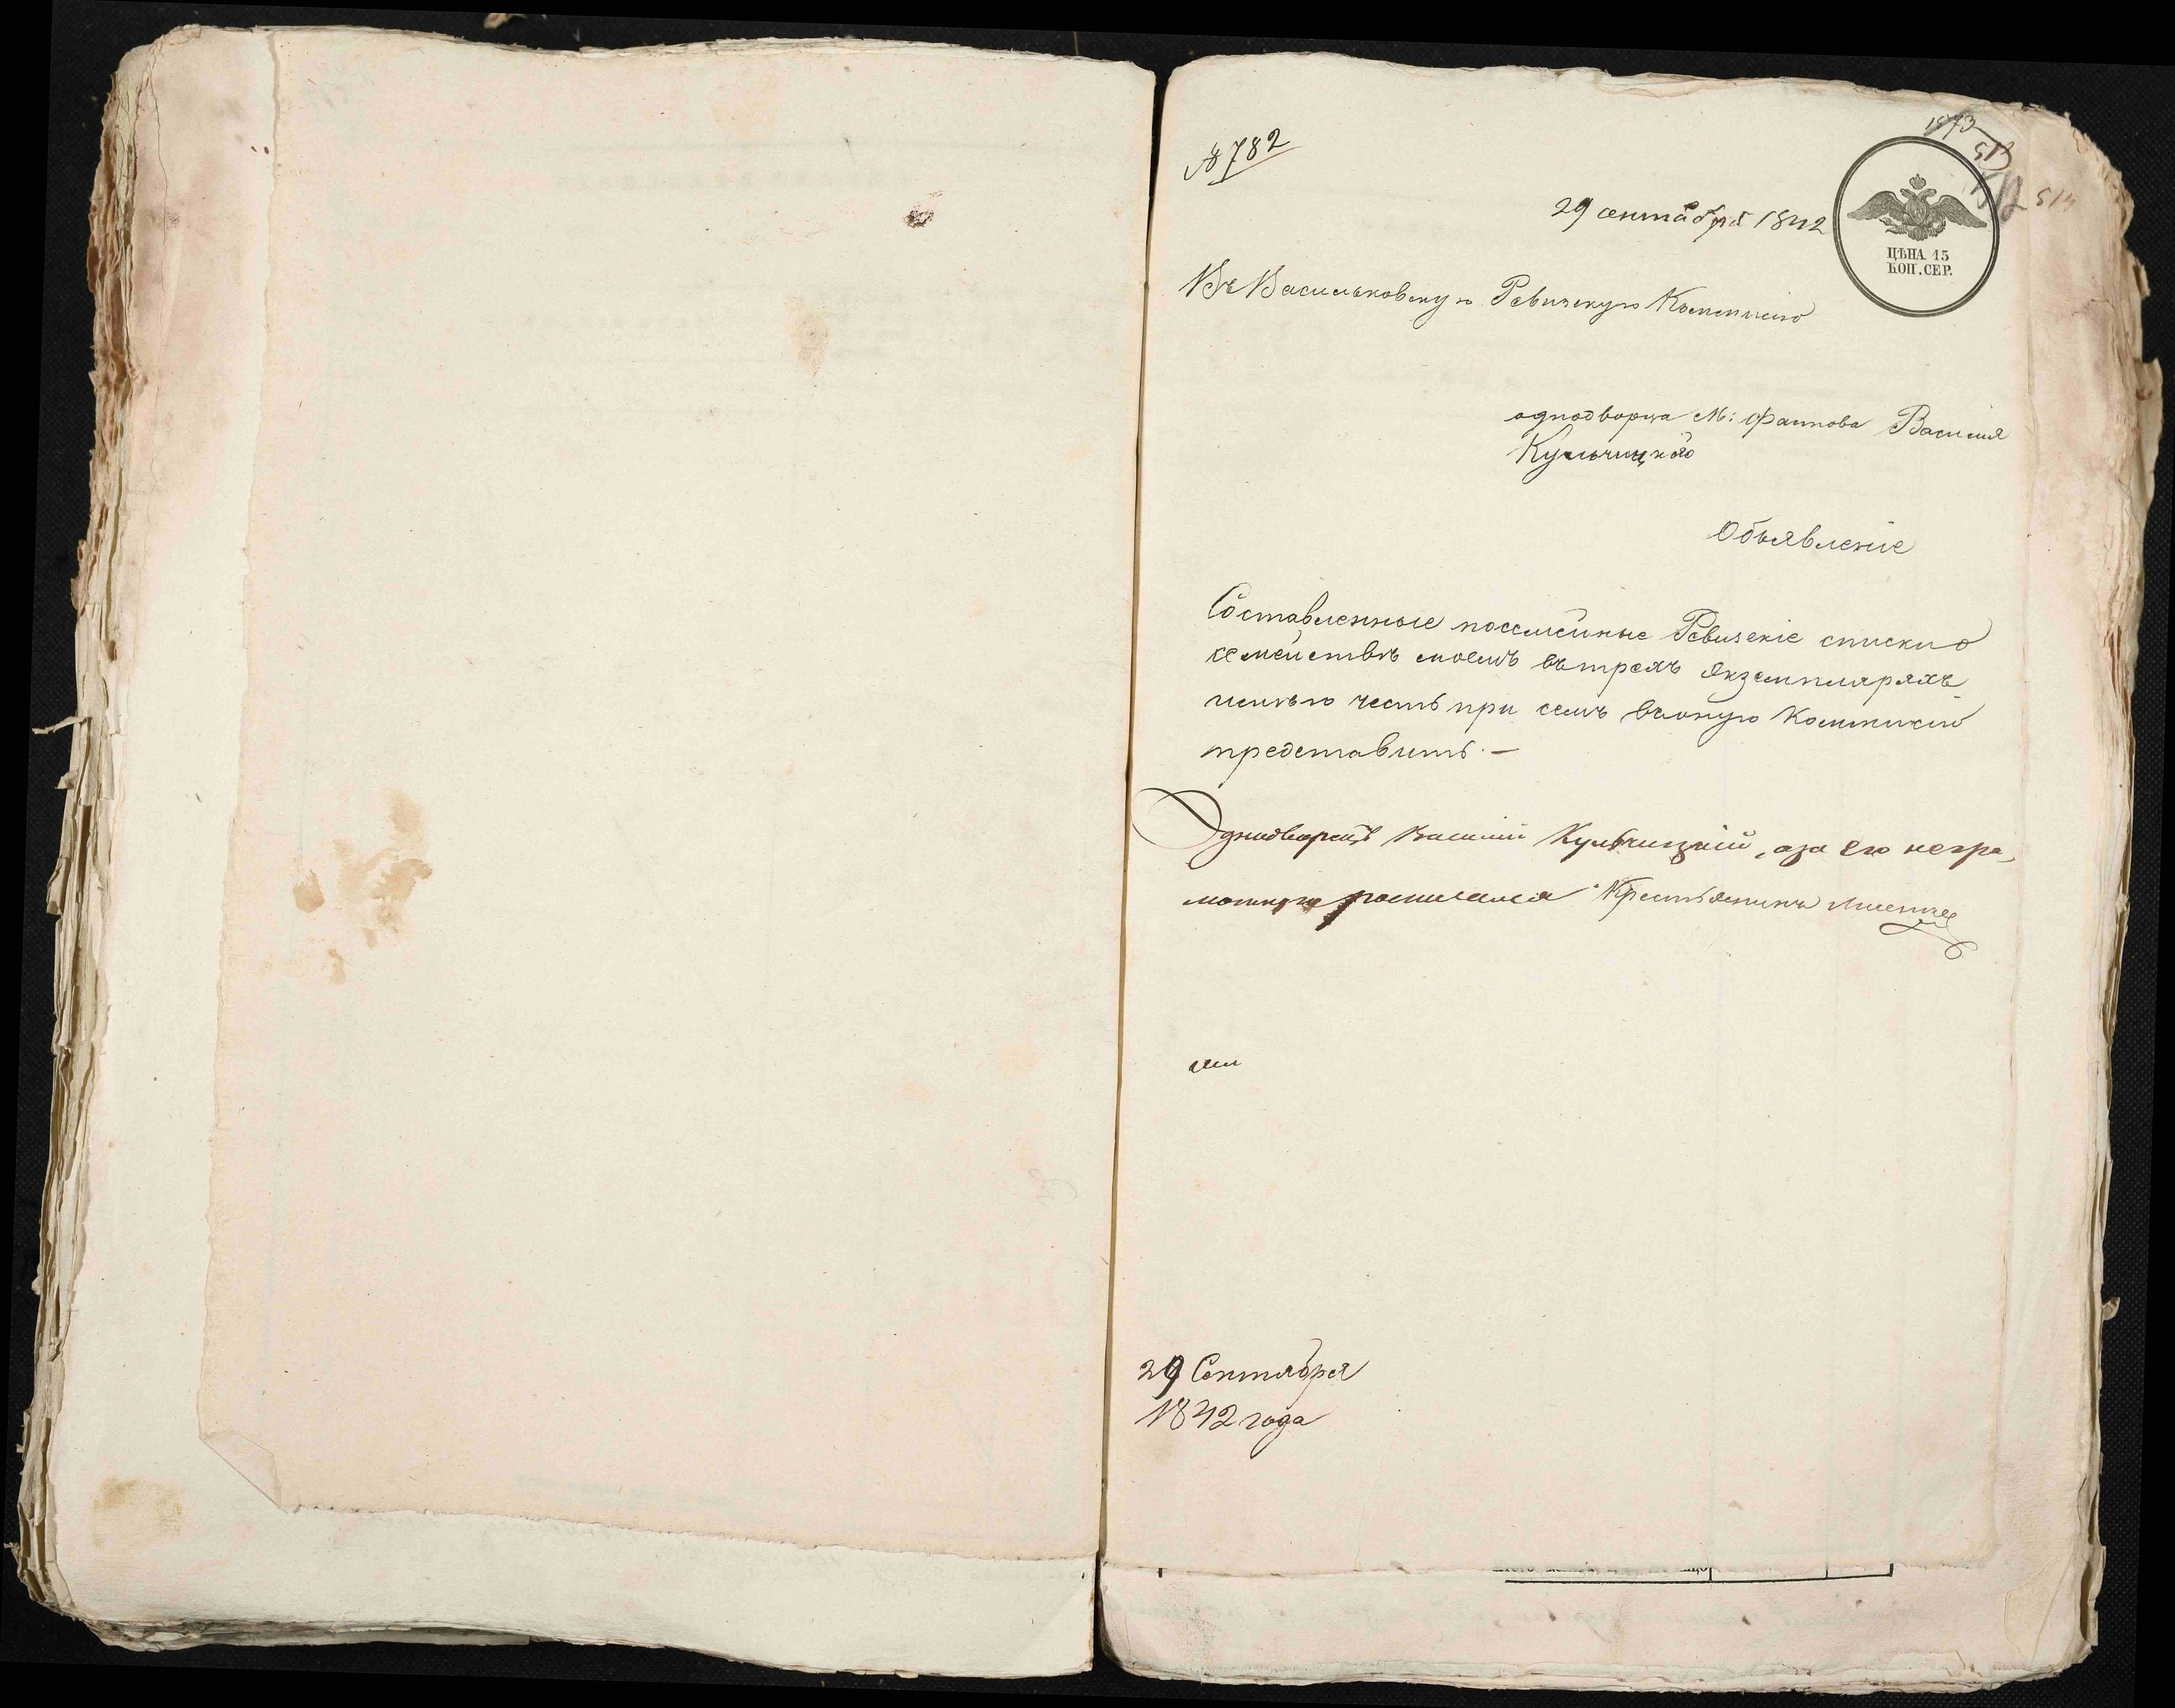 № 782
1573
513
512
514
29 сентября 1842
ЦѢНА 15
КОП. СЕР.
Въ Васильковскую Ревизскую Коммисію
однодворца М: Фастова Василія
Кульчицкаго
Объявленіе
Составленные посемейные Ревизскіе списки о
семействѣ моемъ въ трехъ экземплярахъ
имѣю честь при семъ въ оную Коммисію
представить. —
Однодворецъ Василій Кульчицкій, а за его негра-
мотного росписался Крестьянинъ
29 Сентября
1842 года